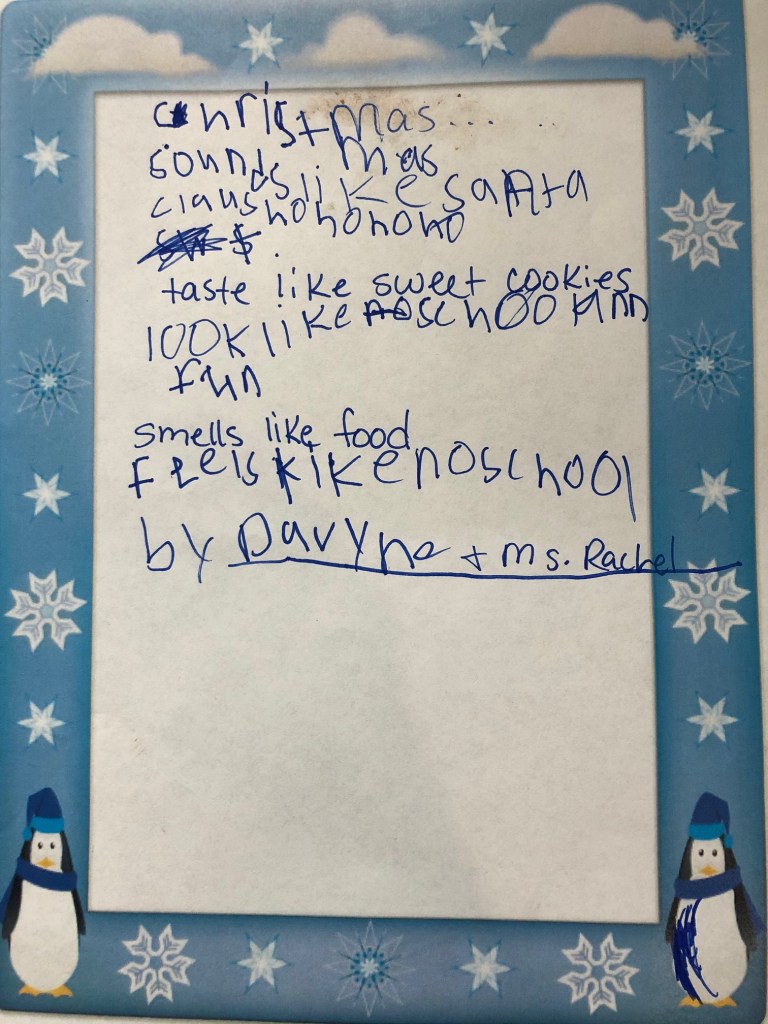 christmas...
sounds mas
like santa
claus hohohoho
taste like sweet cookies
look like noschool ann
fun
smells like food
feels kike noschool
by Davyne + ms. Rachel